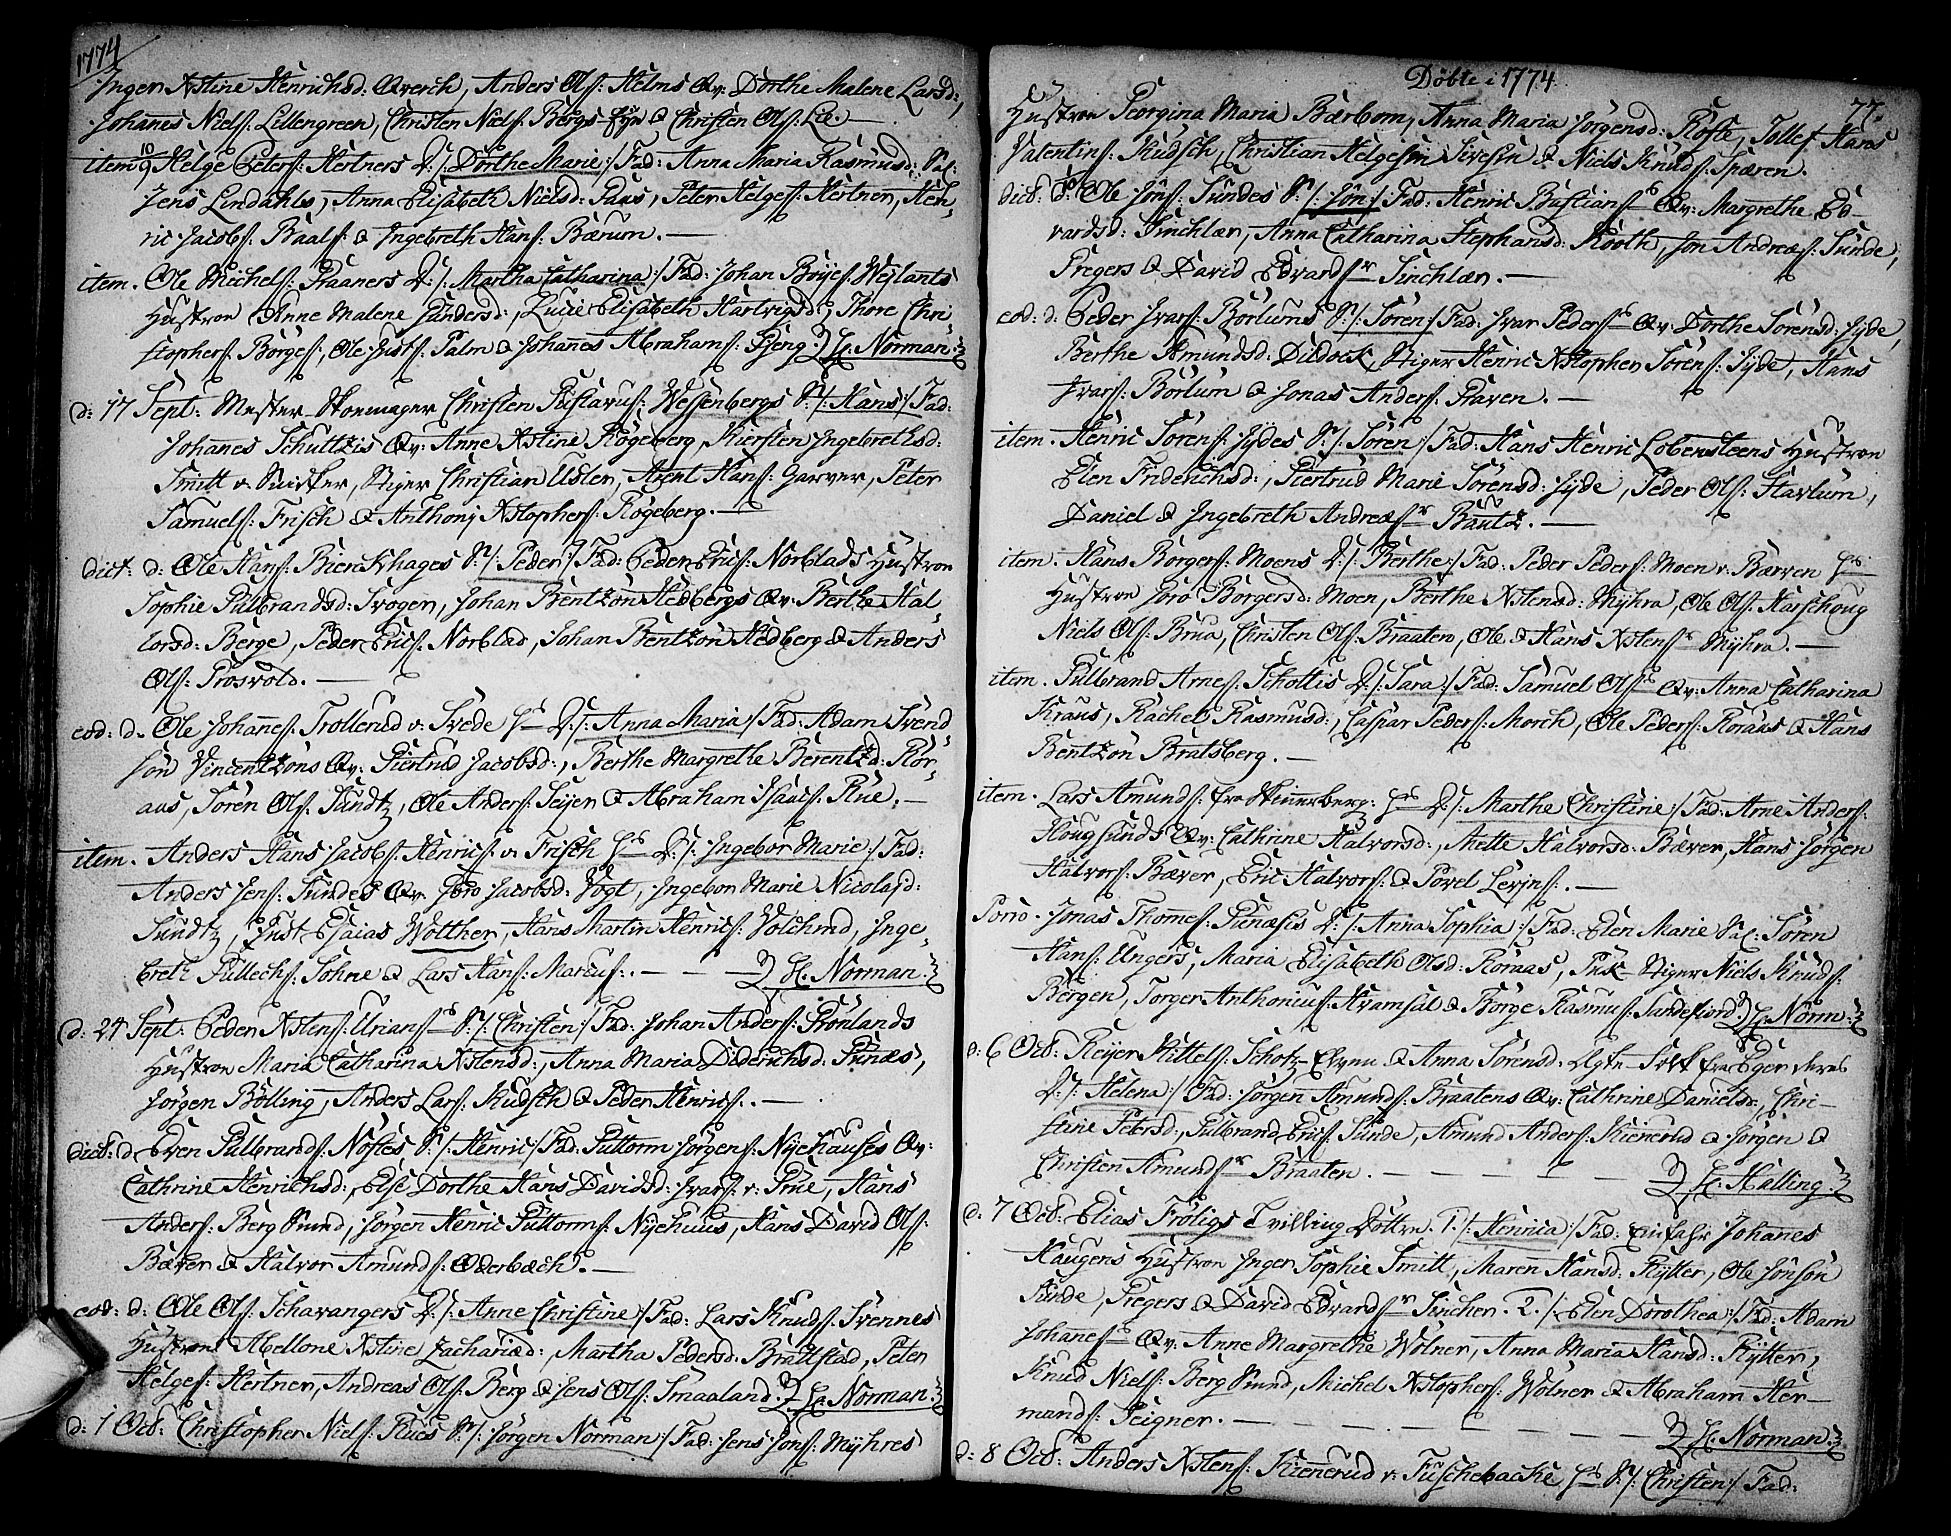 1774
Inger Xstine Henrichsd: Qverch, Anders Ols: Helms Qv: Dorthe Malene Larsd:,
Johanes Niels: Lillengreen, Christen Niels: Bergs & Christen Ols: Lie. —
item 10/9 Helge Peters: Hertners D: /: Dorthe Marie :/ Fad: Anna Maria Rasmusd: Sal:
Jens Lindahls, Anna Elisabeth Nielsd: Paus, Peter Helges: Hertner, Hen-
ric Jacobs: Baals: & Ingebreth Hans: Bærum. —
item. Ole Michels: Praaners D: /: Martha Catharina :/ Fad: Johan Böyes: Weylants
Hustroe Anne Malene Gundersd:, Lucie Elisabeth Hartvigsd:, Thore Chri-
stophers: Börges:, Ole Justs: Palm & Johanes Abrahams: Fjeng. H. Norman.
d: 17 Sept: Mester Skoemager Christen Gustavus: Wessenbergs S: /: Hans :/ Fad:
Johanes Schultzis Qv: Anne Xstine Rögeberg, Kiersten Ingebrethsd:
Smitt v: Suisker, Stiger Christian Usler, Arent Hans: Garver, Peter
Samuels: Frisch & Anthonj Xstophers: Rögeberg. —
dict: d: Ole Hans: Bienckhages S: /: Peder :/ Fad: Peder Erics: Norblads Hustroe
Sophie Gulbrandsd: Svogen, Johan Bentzon Hedbergs Qv: Berthe Hal-
vorsd: Berge, Peder Erics: Norblad, Johan Bentzon Hedberg & Anders
Ols: Grosvold. —
eod: d: Ole Johanes: Trollerud v: Svede D: /: Anna Maria :/ Fad: Adam Svend
sön Vincentzons Qv: Giertrud Jacobsd:, Berthe Margrethe Berentzd: Rör-
aas, Sören Ols: Sundtz, Ole Anders: Seijer & Abraham Isaacs: Rue. —
item. Anders Hans Jacobs: Henrics: v: Frisch D: /: Ingebor Marie :/ Fad:
Anders Jens: Sundes Qv: Joro Jacobsd: Vogt, Ingebor Marie Nicolajd:
Sundtz, Just Esaias Wolther, Hans Martin Henrics: Volchmd, Inge-
breth Gullechs: Sohne & Lars Hans: Marcus:. — — H. Norman.
d: 24 Sept: Peder Xstens: Urians: S: /: Christen :/ Fad: Johan Anders: Grönlands
Hustroe Maria Catharina Xstensd:, Anna Maria Diderichsd: Punæs,
Jörgen Bölling, Anders Lars: Kudsch & Peder Henrics:. —
dict: d Even Gulbrands: Nöstes S: /: Henric :/ Fad: Guttorm Jörgens: Nyehuuses Qv:
Cathrine Henrichsd:, Else Dorthe Hans Davidsd: Ivars: v: Grue, Hans
Anders: Berg Smind, Jörgen Henric Guttorms: Nyehuus, Hans David Ols:
Bæver & Halvor Amunds: Oderbæch. —
eod: d: Ole Ols: Schavangers D: /: Anne Christine :/ Fad: Lars Knuds: Svennes
Hustroe Abellone Xstine Zachariæd:, Martha Pedersd: Brattstad, Peter
Helges: Hertner, Andreas Ols: Berg & Jens Ols: Smaaland. H. Norman.
d: 1 Oct: Christopher Niels: Rues S: /: Jörgen Norman :/ Fad: Jens Jons: Myhres
Döbte i 1774
77.
Hustroe Georgina Maria Bærbom, Anna Maria Jörgensd: Röste, Tollef Hans
Valentins: Kudsch, Christian Helgesön Sivesön & Niels Knuds: Spæren.
dict: d: Ole Jöns: Sundes S: /: Jön :/ Fad: Henric Bastians: Qv: Margrethe Ed-
vardsd: Sinchlær, Anna Catharina Stephansd: Rooth, Jon Andreæs: Sunde,
Gregers & David Edvards: Sinchlær. —
eod: d: Peder Ivars: Börlums S: /: Sören :/ Fad: Ivar Peders: Qv: Dorthe Sörensd: Jyde,
Berthe Amundsd: Dildock, Stiger Henric Xstopher Sörens: Jyde, Hans
Ivars: Börlum & Jonas Anders: Graven. —
item. Henric Sörens: Jydes S: /: Sören :/ Fad: Hans Henric Lobensteens Hustroe
Elen Friderichsd:, Giertrud Marie Sörensd: Jyde, Peder Ols: Stavlum,
Daniel & Ingebreth Andreæs: Bautz. —
item. Hans Börgers: Moens D: /: Berthe :/ Fad: Peder Peders: Moen v: Bærven
Hustroe Joro Börgersd: Moen, Berthe Xstensd: Myhra, Ole Ols: Harschoug
Niels Ols: Brua, Christen Ols: Braaten, Ole & Hans Xstens: Myhra. —
item. Gulbrand Arnes: Schottis D: /: Sara :/ Fad: Samuel Ols: Qv: Anna Catharina
Kraus, Rachel Rasmusd:, Caspar Peders: Morch, Ole Peders: Roraas & Hans
Bentzon Bratsberg. —
item. Lars Amunds: fra Skinerberg: D: /: Marthe Christine :/ Fad: Arne Anders:
Hougsunds Qv: Cathrine Halvorsd:, Mette Halvorsd: Bæver, Hans Jörgen
Halvors: Bæver, Eric Halvors: & Povel Levins:. —
Porro. Jonas Thomes: Punæsis D: /: Anna Sophia :/ Fad: Elen Marie Sal: Sören
Hans: Ungers, Maria Elisabeth Olsd: Roraas, Stiger Niels Knuds:
Bergen, Torger Anthonius: Kvamsal & Börge Rasmus: Sandefiord. H. Norm:
d: 6 Oct: Reyer Kittels: Schotz & Anna Sörensd: Ægte Folk fra Eger deres
D: /: Helena :/ Fad: Jörgen Amunds: Braatens Qv: Cathrine Danielsd:, Chri-
stine Petersd:, Gulbrand Erics: Sunde, Amund Anders: Kienerud & Jörgen &
Christen Amunds: Braaten. — — — H. Halling.
d: 7 Oct: Elias Fröligs Tvilling Döttre. 1. /: Henrica :/ Fad: Einfahr Johanes
Haugens Hustroe Inger Sophie Smitt, Maren Hansd: Rytter, Ole Jönsön
Sunde, Gregers & David Edvards: Sincher. 2. /: Elen Dorothea :/ Fad: Adam
Johanes: Qv: Anne Margrethe Wölner, Anna Maria Hansd: Rytter,
Knud Niels: Berg Smind, Michel Xstophers: Wölner & Abraham Her-
mands: Seigner. — — — H. Norman.
d: 8 Oct: Anders Xstens: Kienerud v: Fuschebacke S: /: Christen :/ Fad: